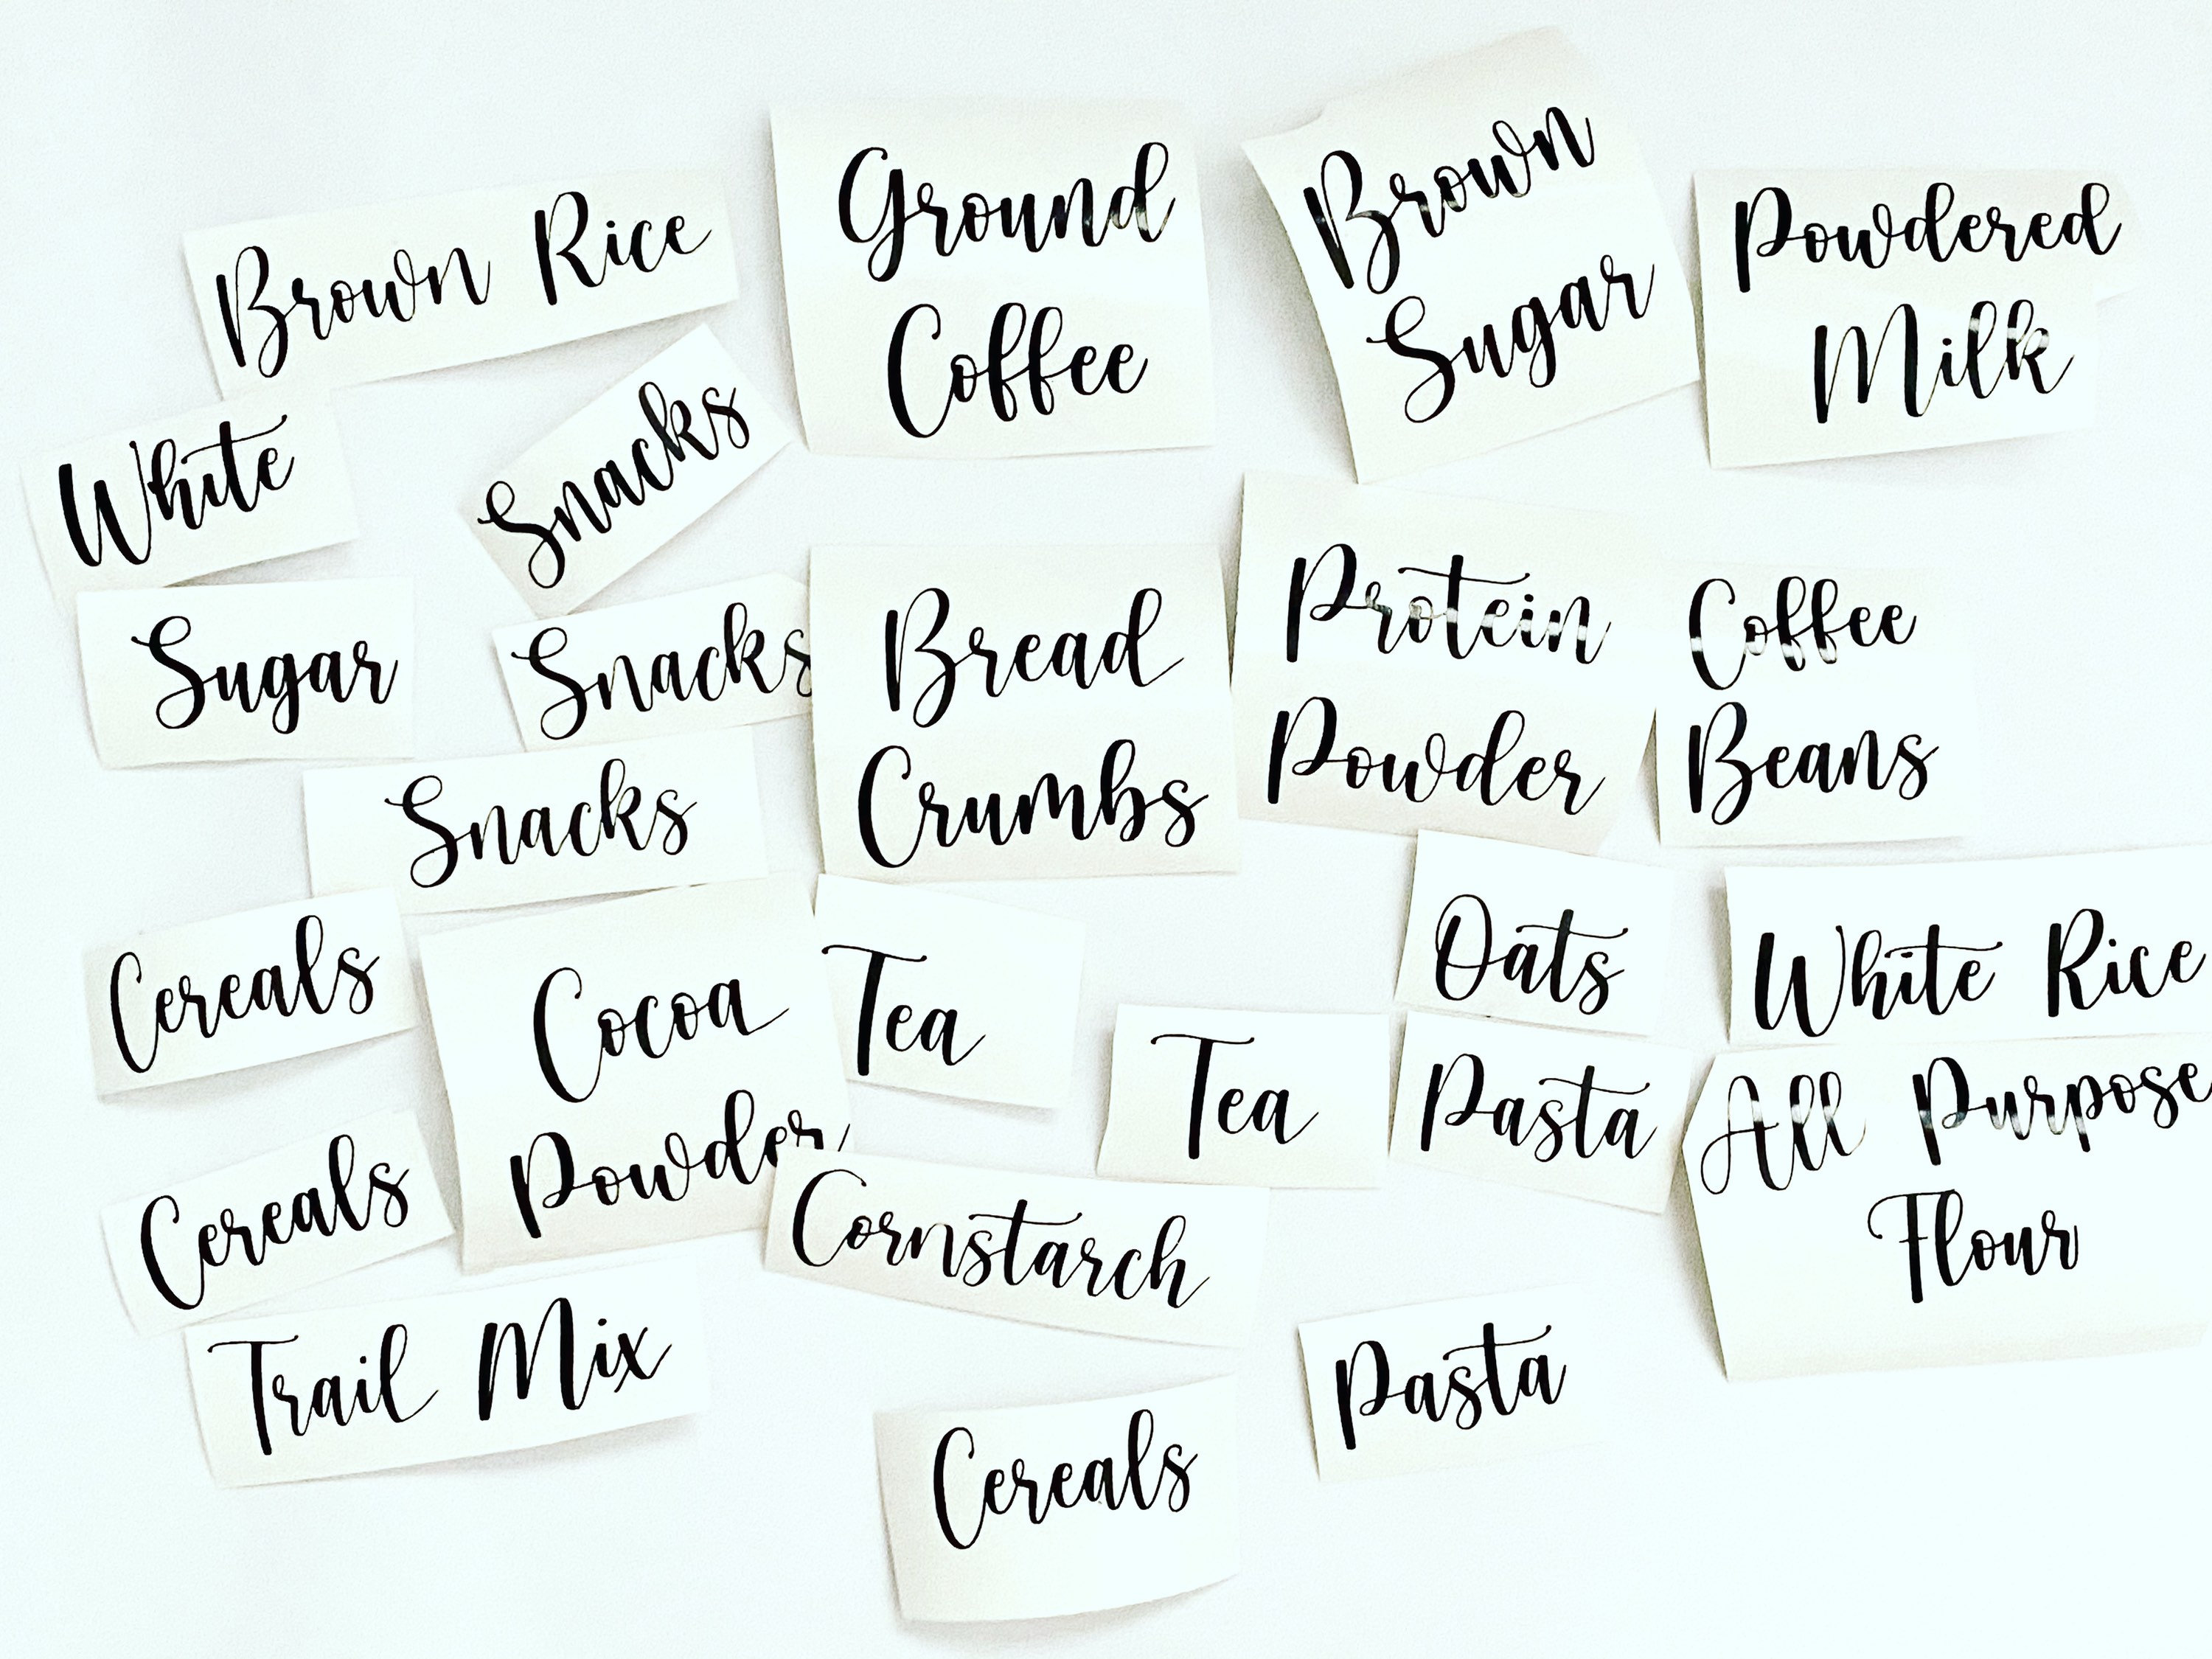 Brown Rice
Ground
Coffee
Brown
Sugar
Powdered
Milk
White
Sugar
Snacks
Snacks
Snacks
Bread
Crumbs
Protein
Powder
Coffee
Beans
Cereals
Cocoa
Powder
Tea
Tea
Oats
Pasta
White Rice
All Purpose
Flour
Cereals
Cornstarch
Trail Mix
Cereals
Pasta